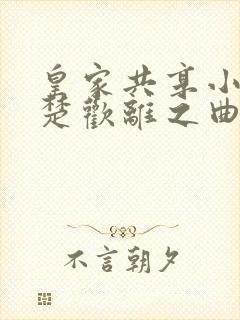 皇家共享小
楚歡離之曲
不言朝夕